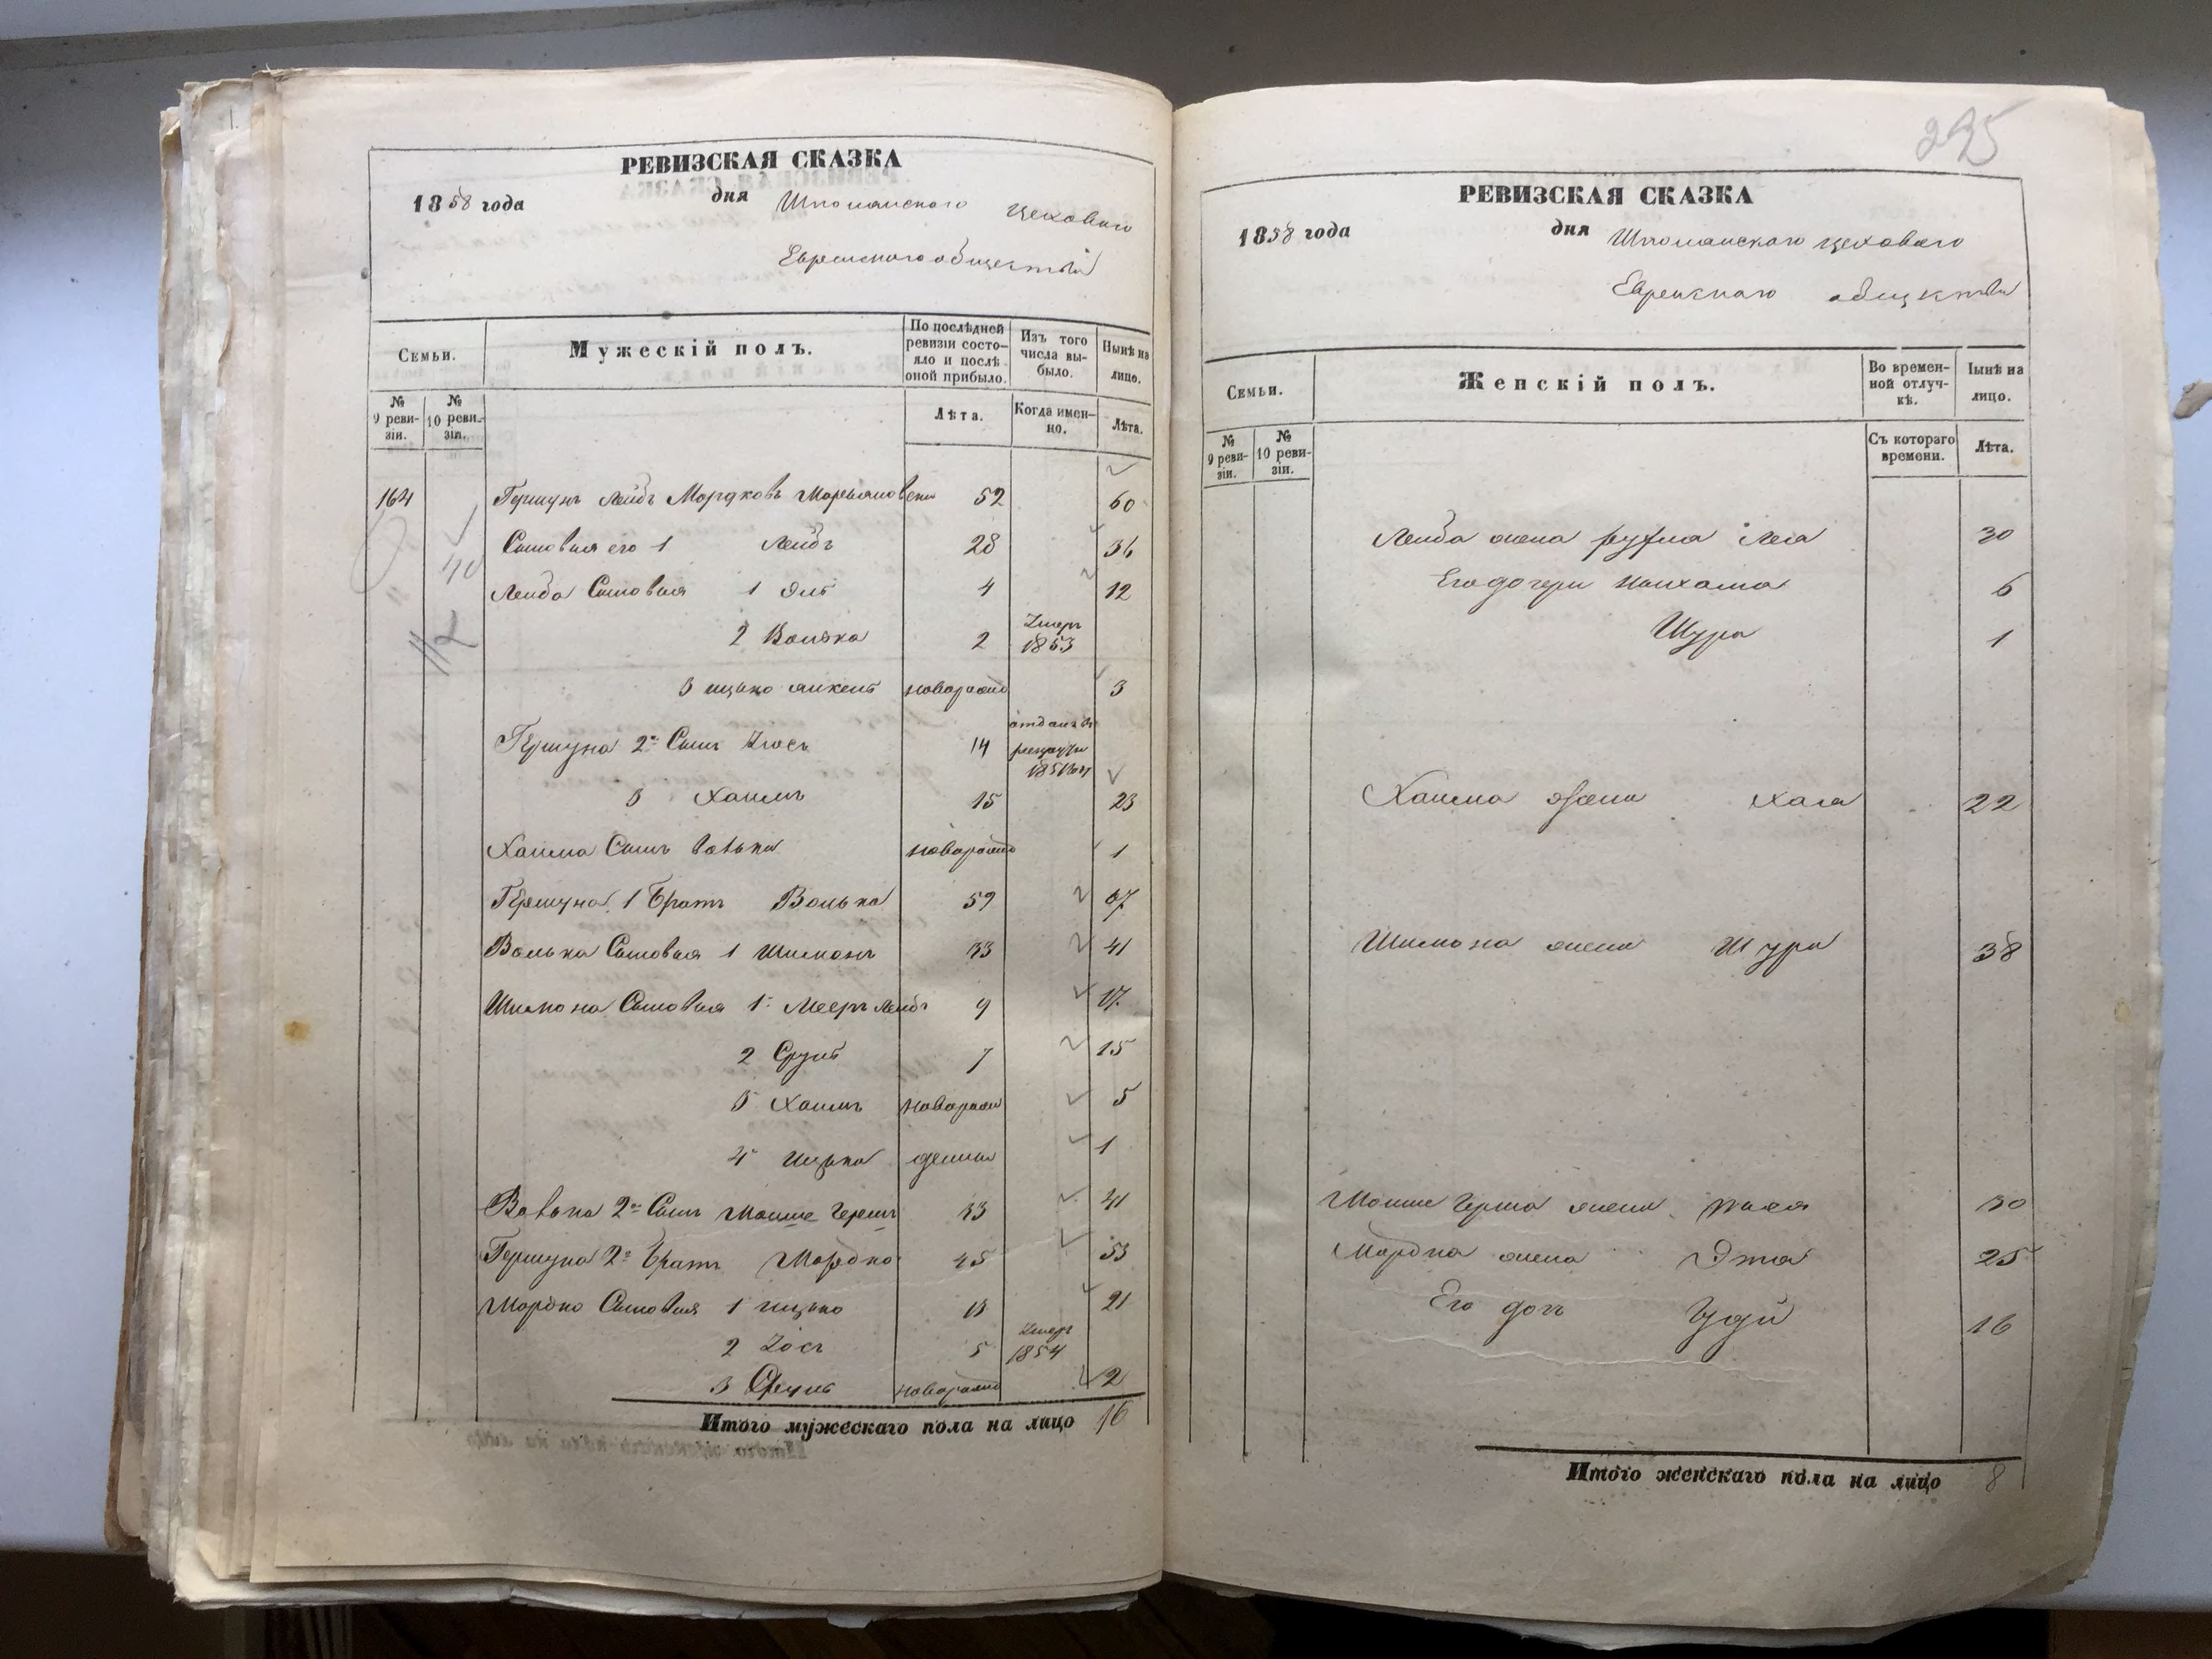 РЕВИЗСКАЯ СКАЗКА
1858 года дня Шполянского цехового
Еврейского общества
Семьи. Мужескій полъ. По послѣдней ревизіи состояло и послѣ оной прибыло. Изъ того числа выбыло. Нынѣ на лицо.
№ 9 ревизіи. № 10 ревизіи. Лѣта. Когда именно. Лѣта.
164 Гершунъ Лейбъ Мордковъ 52 60
Сыновья его 1 Лейбъ 28 36
40
Лейба Сыновья 1 Эль 4 12
112
2 Волька 2 Умеръ 1853
3 ицько новорожд 3
Гершуна 2й Сынъ Зось 14 отданъ въ рекруты 1851
3 Хаимъ 15 23
Хаима Сынъ новорожд 1
Гершуна 1 братъ Волька 59 67
Волька Сыновья 1 Шимонъ 33 41
Шимона Сыновья 1 Мееръ Лейбъ 9 17
2 Сруль 7 15
3 Хаимъ новорож 5
4 Ицько денны 1
Вовька 2й Сынъ Мошие Гершъ 33 41
Гершуна 2й братъ Мордко 45 53
Мордко Сыновья 1 ицько 13 21
2 Зось 5 Умеръ 1854
3 Сруль новорожд 2
Итого мужескаго пола на лицо 16
295
РЕВИЗСКАЯ СКАЗКА
1858 года дня Шполянского цехового
Еврейского общества
Семьи. Женскій полъ. Во временной отлучкѣ. Нынѣ на лицо.
№ 9 ревизіи. № 10 ревизіи. Съ котораго времени. Лѣта.
Лейба жена 30
Его дочери 6
Шура 1
Хаима жена Хая 22
Шимона жена Шура 38
Мошие Герша жена 30
Мордка жена Эта 25
Его дочь 16
Итого женскаго пола на лицо 8